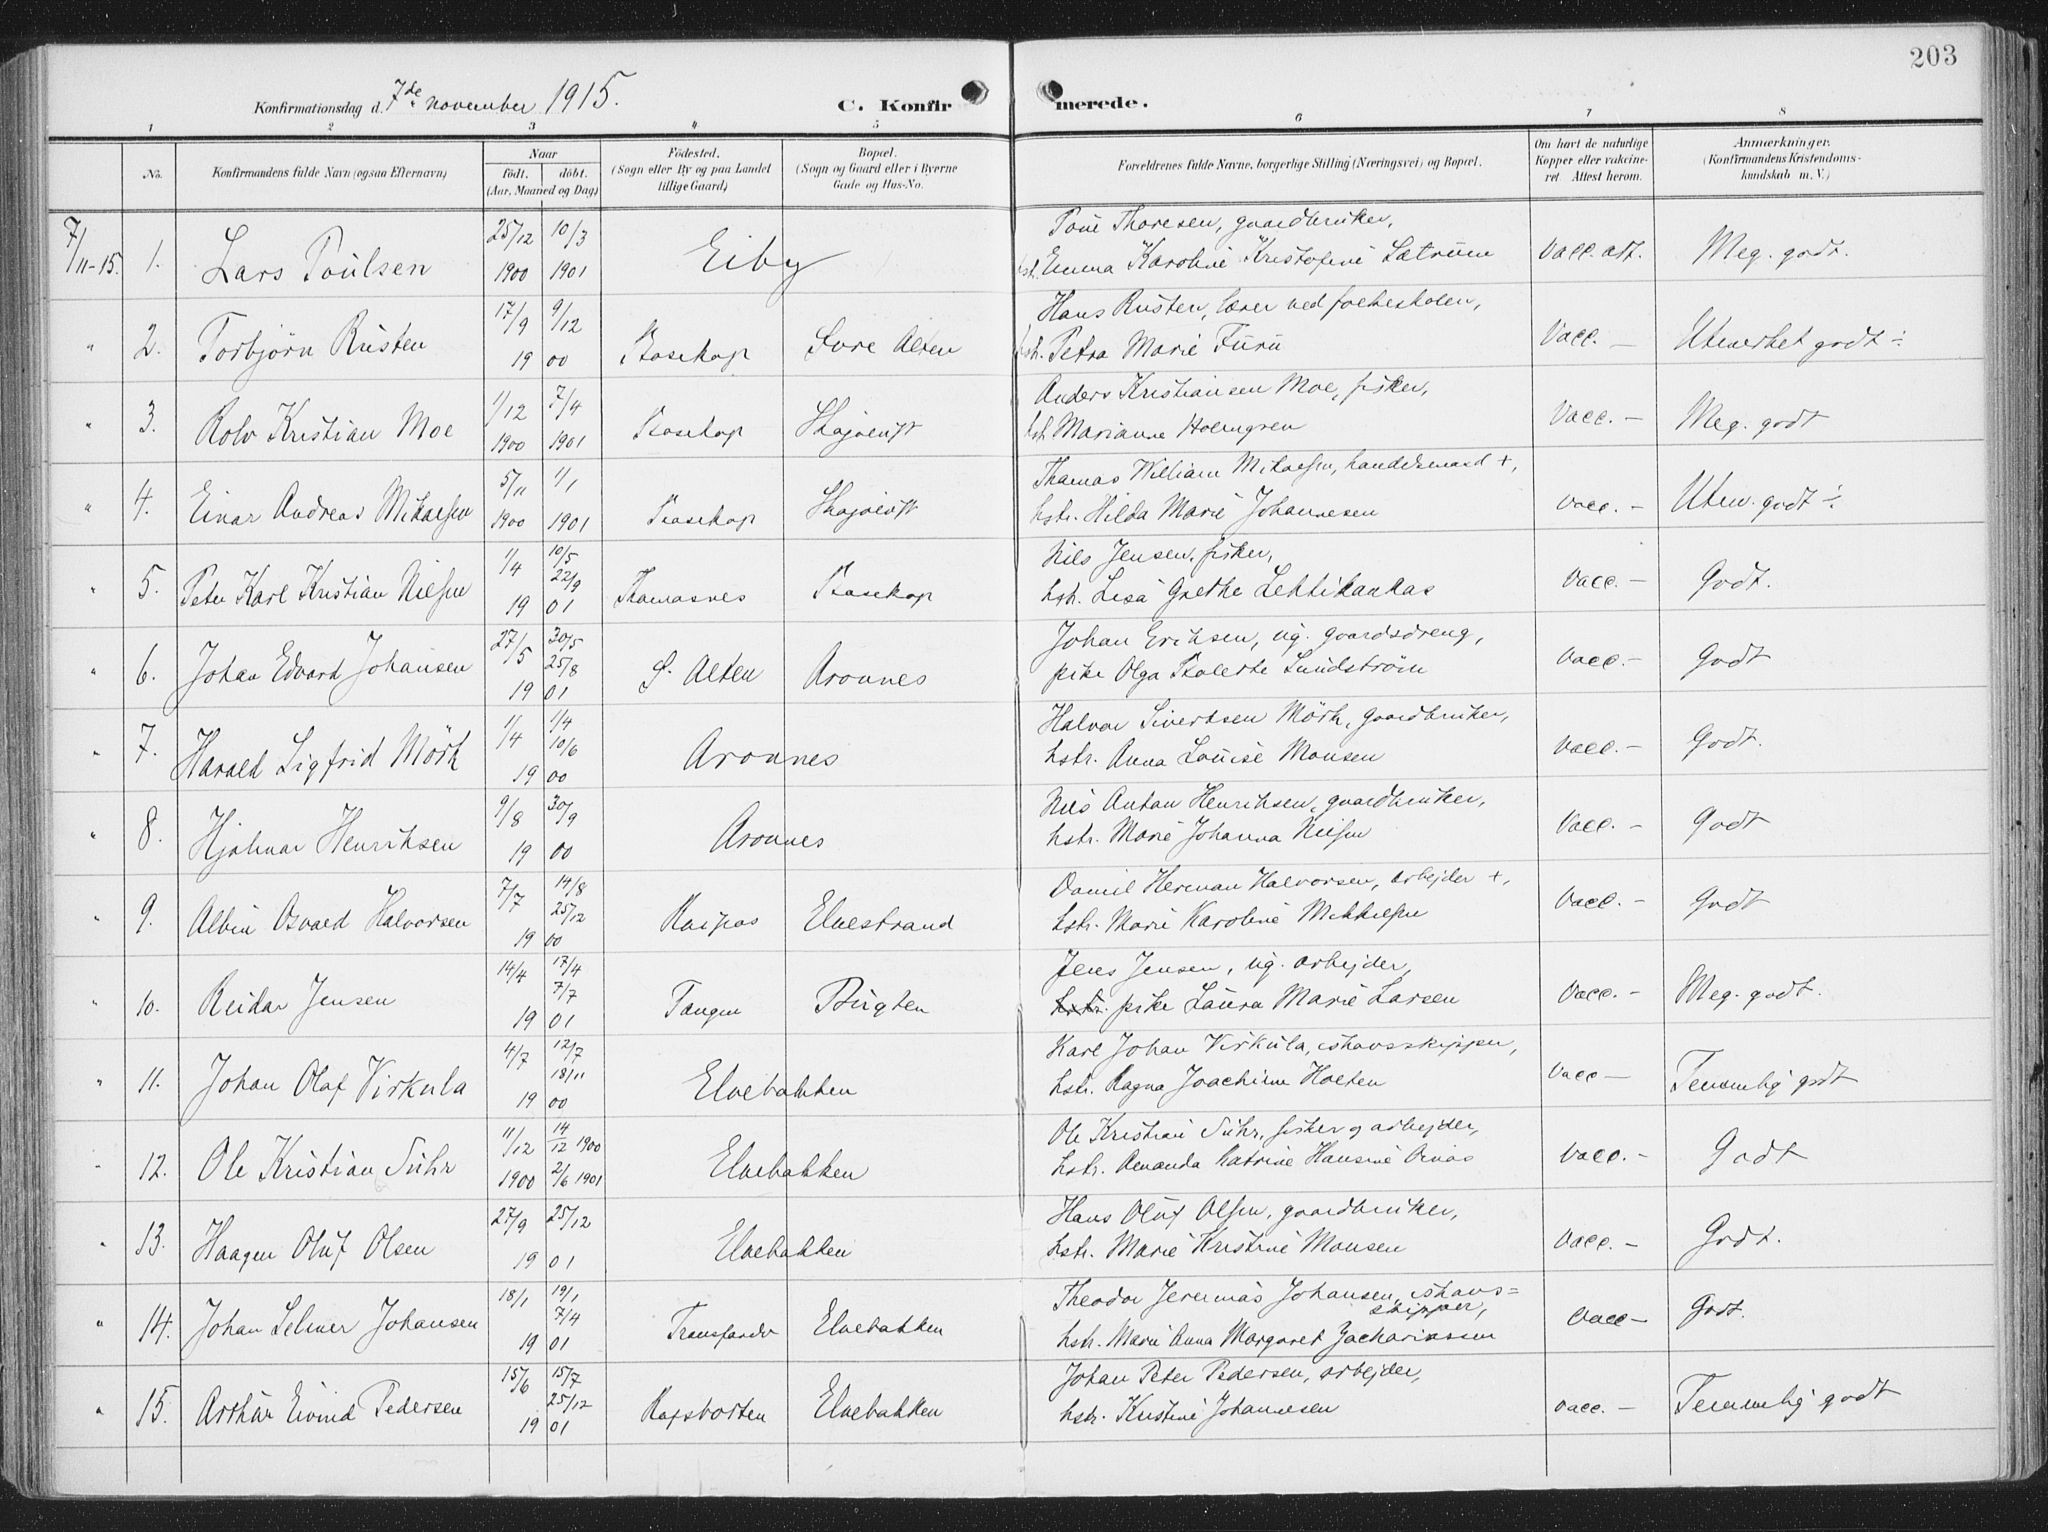 203
Konfirmationsdag d. 7de november 1915.
C. Konfirmerede.
1 2 3 4 5 6 7 8
No.
Konfirmandens fulde Navn (ogsaa Efternavn)
Naar
født. døbt.
(Aar, Maaned og Dag)
Fødested.
(Sogn eller By og paa Landet
tillige Gaard)
Bopæl.
(Sogn og Gaard eller i Byerne
Gade og Hus-No.
Forældrenes fulde Navne, borgerlige Stilling (Næringsvei) og Bopæl.
Om havt de naturlige
Kopper eller vakcine-
ret. Attest herom.
Anmærkninger.
(Konfirmandens Kristendoms-
kundskab m. V.)
7/11-15. 1. Lars Poulsen 25/12 1900 10/3 1901 Eiby
Poul Thoresen, gaardbruker,
hstr. Emma Karoline Kristofine Lætrum
Vacc. att. Meg. godt.
" 2. Torbjørn Rusten 17/9 9/12 1900 Bosekop Øvre Alten
Hans Rusten, lærer ved folkeskolen,
hstr. Petra Marie Furu
Vacc. — Utmerket godt ÷
" 3. Rolv Kristian Moe 1/12 1900 7/4 1901 Bosekop Skajaluft
Anders Kristiansen Moe, fisker,
hstr. Marianne Holmgren
Vacc. — Meg. godt
" 4. Einar Andreas Mikaelsen 5/11 1900 1/1 1901 Bosekop Skajaluft
Thomas William Mikaelsen, handelsmand +,
hstr. Hilda Marie Johannesen
Vacc. — Utm. godt ÷
" 5. Peter Karl Kristian Nilsen 1/4 10/5 22/9 1901 Thomasnes Bosekop
Nils Jensen, fisker,
hstr. Lisa Grethe Lehtikankas
Vacc. — Godt.
" 6. Johan Edvard Johansen 27/5 30/5 25/8 1901 Ø. Alten Aronnes
Johan Eriksen, ug. gaardsdreng,
pike Olga Bolette Lundström
Vacc. — Godt
" 7. Harald Sigfrid Mörk 1/4 1/4 10/6 1900 Aronnes
Halvor Sivertsen Mörk, gaardbruker,
hstr. Anna Louise Monsen
Vacc. — Godt.
" 8. Hjalmar Henriksen 9/8 30/9 1900 Aronnes
Nils Anton Henriksen, gaardbruker,
hstr. Marie Johanna Nilsen
Vacc. — Godt
" 9. Albin Osvald Halvorsen 7/7 14/8 25/12 1900 Kaipas Elvestrand
Daniel Herman Halvorsen, arbejder +,
hstr. Marie Karoline Mikkelsen
Vacc. — Godt
" 10. Reidar Jensen 14/4 17/4 7/7 1901 Tangen Bugten
Jens Jensen, ug. arbejder,
hstr. pike Laura Marie Larsen
Vacc. — Meg. godt.
" 11. Johan Olaf Virkula 4/7 12/7 18/11 1900 Elvebakken
Karl Johan Virkula, ishavsskipper,
hstr. Ragna Joachime Holten
Vacc — Temmelig godt
" 12. Ole Kristian Suhr 11/12 1900 14/12 1900 2/6 1901 Elvebakken
Ole Kristian Suhr, fisker og arbejder,
hstr. Amanda Katrine Hansine Oinas
Vacc. — Godt
" 13. Haagen Oluf Olsen 27/9 25/12 1901 Elvebakken
Hans Oluf Olsen, gaardbruker,
hstr. Marie Kristine Monsen
Vacc. — Godt.
" 14. Johan Selmer Johansen 18/1 19/1 7/4 1901 Transfarelv Elvebakken
Theodor Jeremias Johansen, ishavs=
skipper,
hstr. Marie Anna Margaret Zachariassen
Vacc — Godt.
" 15. Arthur Eivind Pedersen 15/6 15/7 25/12 1901 Rafsbotten Elvebakken
Johan Peter Pedersen, arbejder,
hstr. Kristine Johannesen
Vacc. — Temmelig godt